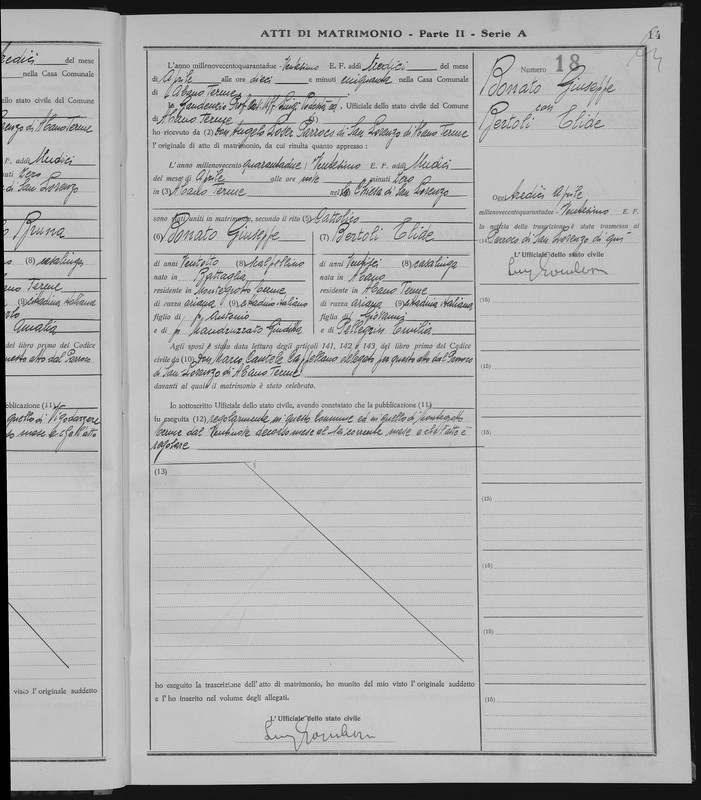 ATTI DI MATRIMONIO - Parte II - Serie A
14
L'anno millenovecentoquarantadue - Ventesimo E. F. addì tredici del mese
di Aprile alle ore dieci e minuti venti nella Casa Comunale
di Abano Terme
Ufficiale dello stato civile del Comune
di Abano Terme
ho ricevuto da (2) Don Angelo Parroco di San Lorenzo di Abano Terme
l'originale di atto di matrimonio, da cui risulta quanto appresso :
L'anno millenovecento quarantadue Ventesimo E. F. addì Undici
del mese di Aprile alle ore minuti Zero
in (3) Abano Terme nella Chiesa di San Lorenzo
sono stati uniti in matrimonio, secondo il rito (5) Cattolico
(6) Bonato Giuseppe
(7) Bertoli Elide
di anni Ventotto (8) scalpellino
nato in Battaglia
residente in Montegrotto Terme
di razza ariana (9) cittadino italiano
figlio di fu Antonio
e di fu Mandruzzato Giuditta
di anni Ventisei (8) casalinga
nata in Abano
residente in Abano Terme
di razza ariana (9) cittadina italiana
figlia di Giovanni
e di Pellegrin Emilia
Agli sposi è stata data lettura degli articoli 141, 142 e 143, del libro primo del Codice
civile da (10) Don Mario Cappellano delegato per questo atto dal Parroco
di San Lorenzo di Abano Terme
davanti al quale il matrimonio è stato celebrato.
Io sottoscritto Ufficiale dello stato civile, avendo constatato che la pubblicazione (11)
fu eseguita (12) regolarmente in questo Comune ed in quello di Montegrotto
Terme dal Ventinove decorso mese al corrente mese e che l'atto è
regolare
(13)
ho eseguito la trascrizione dell'atto di matrimonio, ho munito del mio visto l'originale suddetto
e l'ho inserito nel volume degli allegati.
L'Ufficiale dello stato civile
Numero 18
Bonato Giuseppe
con
Bertoli Elide
Oggi tredici Aprile
millenovecentoquarantadue - Ventesimo E. F.
la notizia della trascrizione è stata trasmessa al
(14) Parroco di San Lorenzo di qui
L'Ufficiale dello stato civile
(15)
(15)
(15)
(15)
(15)
(15)
(15)
del mese
nella Casa Comunale
dello stato civile del Comune
di Abano Terme
E. F. addì Undici
minuti Zero
di San Lorenzo
Bruna
(8) casalinga
Terme
(9) cittadina italiana
Amalia
del libro primo del Codice
questo atto dal Parroco
pubblicazione (11)
quello di Vigodarzere
visto l'originale suddetto